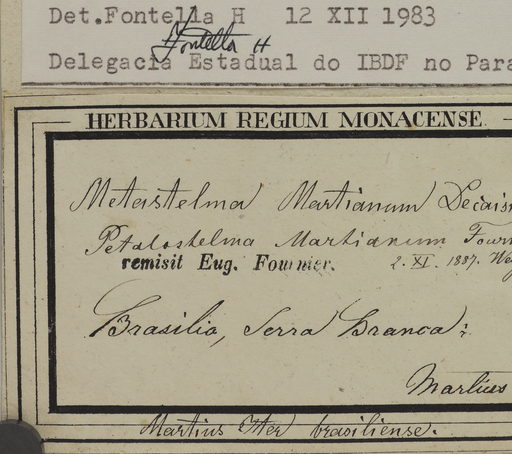 Det.Fontella H 12 XII 1983
Fontella H
Delegacia Estadual do IBDF no Para
HERBARIUM REGIUM MONACENSE.
Metastelma Martianum Decaisn
Petalostelma Martianum Fourn
remisit Eug. Fournier. 2. XI. 1887.
Brasilia, Serra Branca:
Martius
Martius Iter brasiliense.